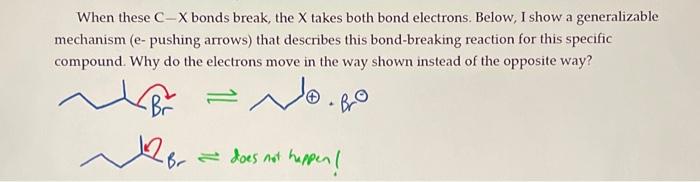 When these C—X bonds break, the X takes both bond electrons. Below, I show a generalizable
mechanism (e- pushing arrows) that describes this bond-breaking reaction for this specific
compound. Why do the electrons move in the way shown instead of the opposite way?
Br ⇌ ⊕ . Br⊖
Br ⇌ does not happen!